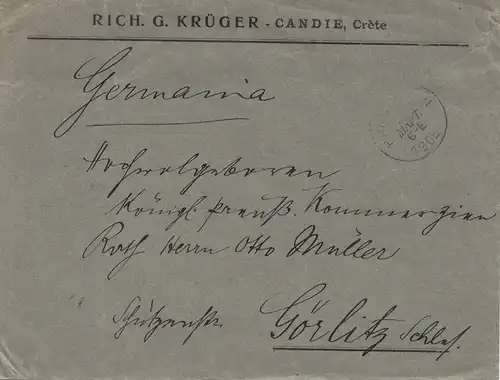 RICH. G. KRÜGER - CANDIE, Crète
Germania
Hochwolgeboren
Königl. Preuß. Kommerzien
Rath Herrn Otto Müller
Schützenstr. Görlitz Schles.